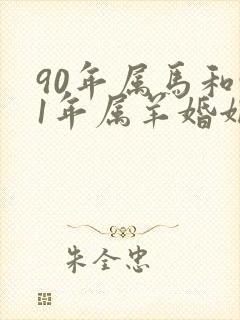 90年属馬和
1年属羊婚
朱全忠